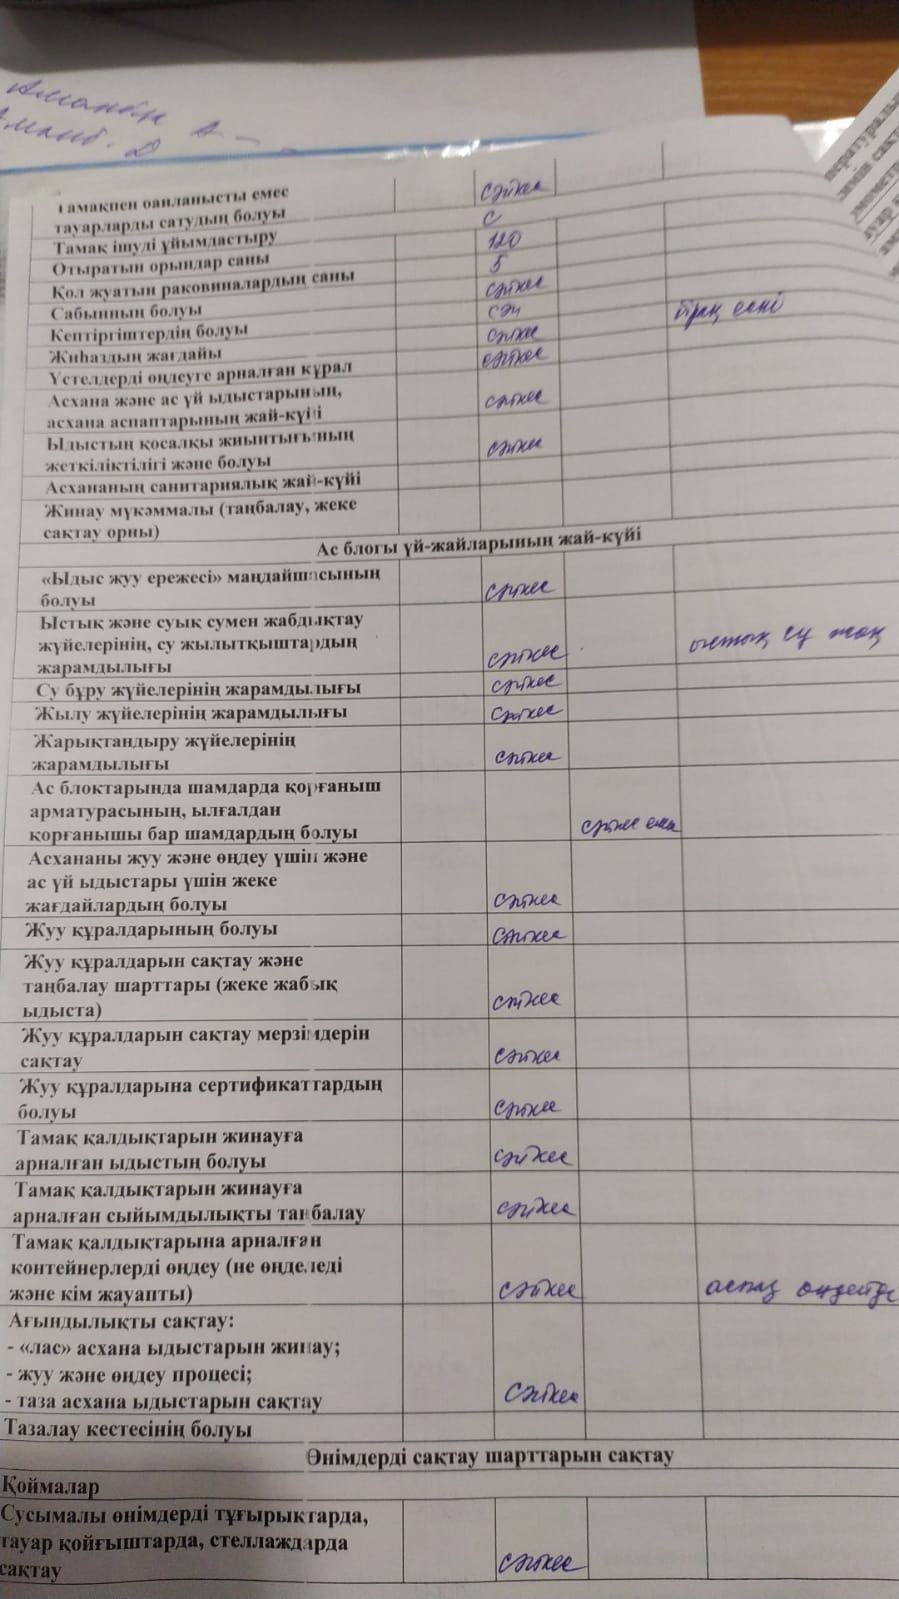 Тамақпен байланысты емес
сәйкес
тауарларды сатудың болуы
Тамақ ішуді ұйымдастыру
с
Отыратын орындар саны
120
Қол жуатын раковиналардың саны
5
Сабынның болуы
сәйкес
Кептіргіштердің болуы
сәй
бірақ ескі
Жиһаздың жағдайы
сәйкес
Үстелдерді өңдеуге арналған құрал
сәйкес
Асхана және ас үй ыдыстарының,
асхана аспаптарының жай-күйі
сәйкес
Ыдыстың қосалқы жиынтығының
жеткіліктілігі және болуы
сәйкес
Асхананың санитариялық жай-күйі
Жинау мүкәммалы (таңбалау, жеке
сақтау орны)
Ас блогы үй-жайларының жай-күйі
«Ыдыс жуу ережесі» маңдайшасының
болуы
сәйкес
Ыстық және суық сумен жабдықтау
жүйелерінің, су жылытқыштардың
жарамдылығы
сәйкес
ыстық су жоқ
Су бұру жүйелерінің жарамдылығы
сәйкес
Жылу жүйелерінің жарамдылығы
сәйкес
Жарықтандыру жүйелерінің
жарамдылығы
сәйкес
Ас блоктарында шамдарда қорғаныш
арматурасының, ылғалдан
қорғанышы бар шамдардың болуы
сәйкес емес
Асхананы жуу және өңдеу үшін және
ас үй ыдыстары үшін жеке
жағдайлардың болуы
сәйкес
Жуу құралдарының болуы
сәйкес
Жуу құралдарын сақтау және
таңбалау шарттары (жеке жабық
ыдыста)
сәйкес
Жуу құралдарын сақтау мерзімдерін
сақтау
сәйкес
Жуу құралдарына сертификаттардың
болуы
сәйкес
Тамақ қалдықтарын жинауға
арналған ыдыстың болуы
сәйкес
Тамақ қалдықтарын жинауға
арналған сыйымдылықты таңбалау
сәйкес
Тамақ қалдықтарына арналған
контейнерлерді өңдеу (не өңделеді
және кім жауапты)
сәйкес
аспаз өңдейді
Ағындылықты сақтау:
- «лас» асхана ыдыстарын жинау;
- жуу және өңдеу процесі;
- таза асхана ыдыстарын сақтау
сәйкес
Тазалау кестесінің болуы
Өнімдерді сақтау шарттарын сақтау
Қоймалар
Сусымалы өнімдерді тұғырықтарда,
тауар қойғыштарда, стеллаждарда
сақтау
сәйкес